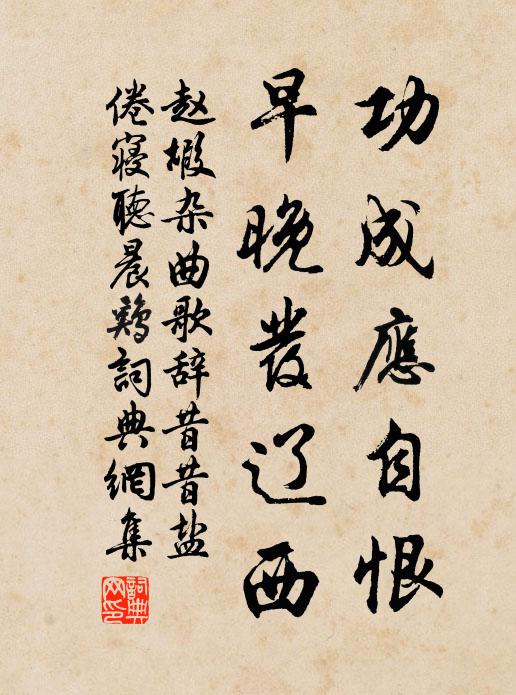 功成應自恨
早晚發辽西
赵嘏杂曲歌辞昔昔盐
倦寝聽晨鷄詞典網集
詞典网印